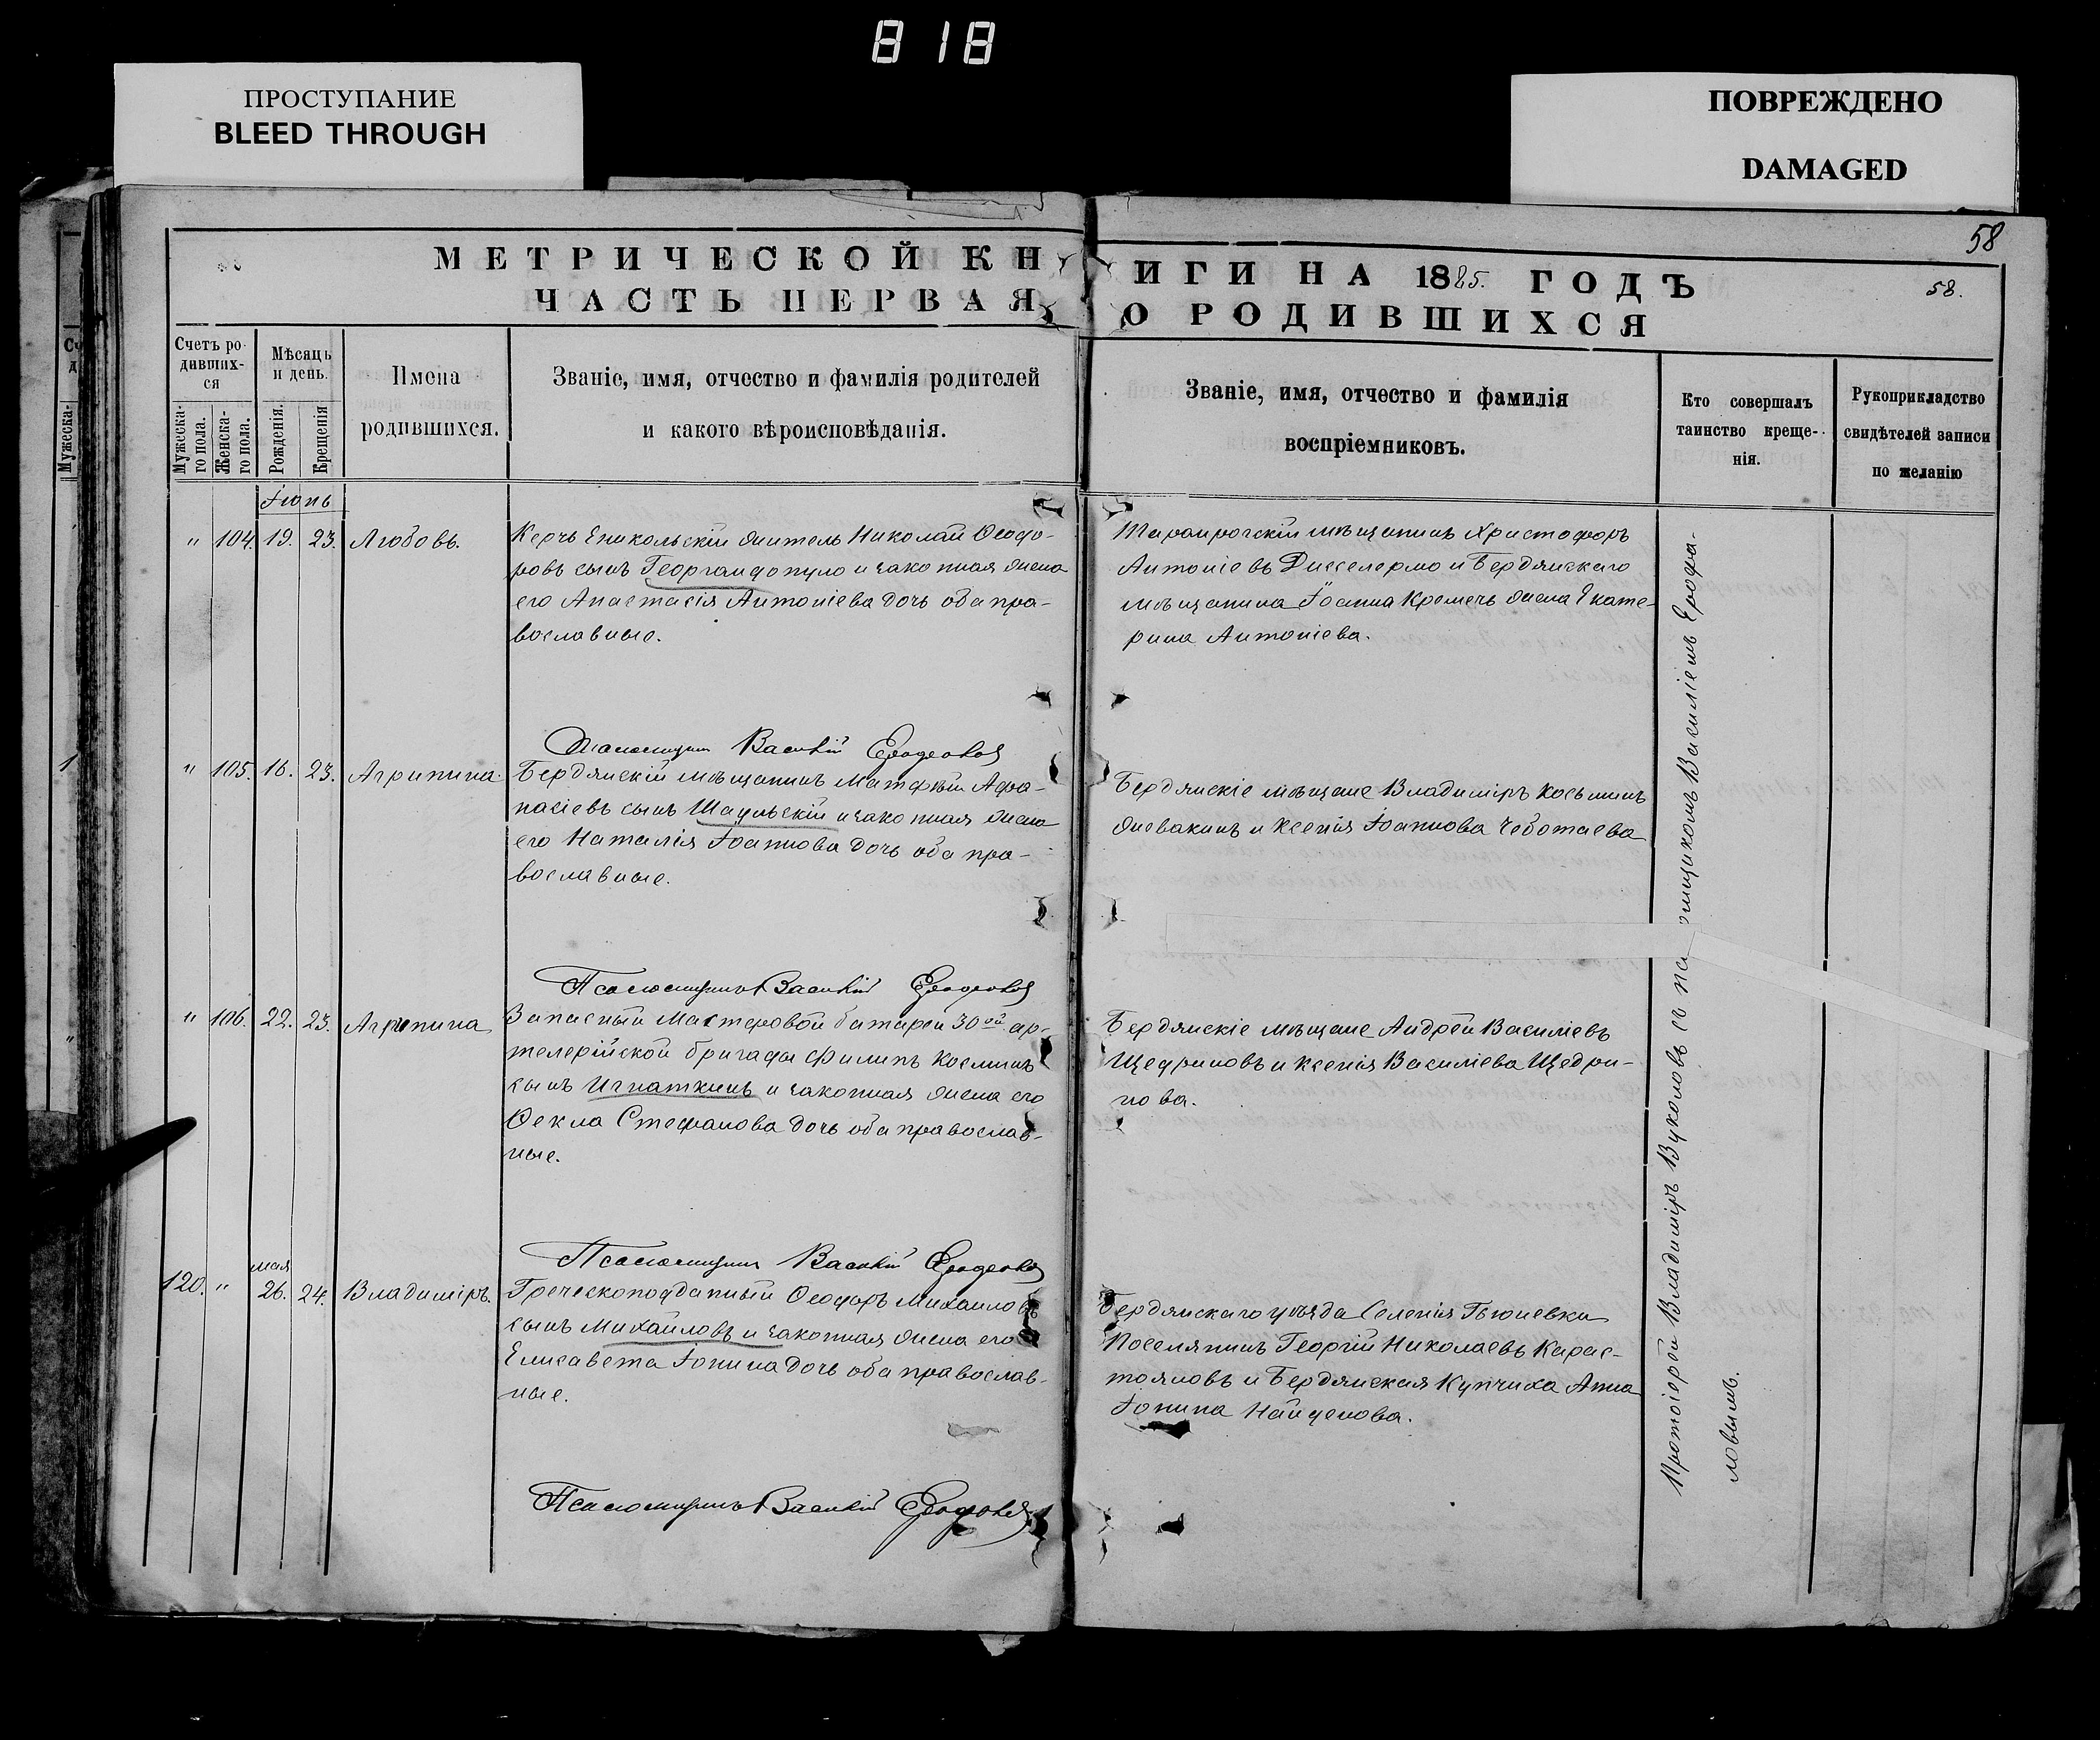 818
ПРОСТУПАНИЕ
BLEED THROUGH
ПОВРЕЖДЕНО
DAMAGED
58
МЕТРИЧЕСКОЙ КНИГИ НА 1885. ГОДЪ
58.
ЧАСТЬ ПЕРВАЯ О РОДИВШИХСЯ
Счетъ ро-
дивших-
ся
Мужеска-
го пола.
Женска-
го пола.
Мѣсяцъ
и день.
Рожденія.
Крещенія
Имена
родившихся.
Званіе, имя, отчество и фамилія родителей
и какого вѣроисповѣданія.
Званіе, имя, отчество и фамилія
воспріемниковъ.
Кто совершалъ
таинство креще-
нія.
Рукоприкладство
свидѣтелей записи
по желанію
Іюнь
" 104. 19. 23. Любовь.
Керчь Еникольскій житель Николай Ѳеодо-
ровъ сынъ Георгандопуло и законная жена
его Анастасія Антоніева дочь оба пра-
вославные.
Таганрогскій мѣщанинъ Христофоръ
Антоніевъ и Бердянскаго
мѣщанина Іоанна Кремечь жена Екате-
рина Антоніева.
Псаломщикъ Василій Ерофаловъ
" 105. 16. 23. Агрипина.
Бердянскій мѣщанинъ Матфѣй Афа-
насіевъ сынъ Шаульскій и законная жена
его Наталія Іоаннова дочь оба пра-
вославные.
Бердянскіе мѣщане Владиміръ Косьминъ
Живакинъ и Ксенія Іоаннова Чеботаева
Псаломщикъ Василій Ерофаловъ
" 106. 22. 23. Агрипина
Запасный Мастеровой батареи 30ой ар-
телерійской бригады Филипъ Косминъ
сынъ Игнаткинъ и законная жена его
Ѳекла Стефанова дочь оба православ-
ные.
Бердянскіе мѣщане Андрей Василіевъ
Щедриновъ и Ксенія Василіева Щедри-
нова.
Псаломщикъ Василій Ерофаловъ
120. " мая 26. 24. Владиміръ.
Греческоподданный Ѳеодоръ Михаиловъ
сынъ Михайловъ и законная жена его
Елисавета Іонина дочь оба православ-
ные.
Бердянскаго уѣзда Селенія Гюневки
Поселянинъ Георгій Николаевъ Карас-
тояновъ и Бердянская Купчиха Анна
Іонина Найденова.
Псаломщикъ Василій Ерофаловъ
Протоіерей Владиміръ Вуколовъ съ псаломщикомъ Василіемъ Ерофа-
ловымъ.